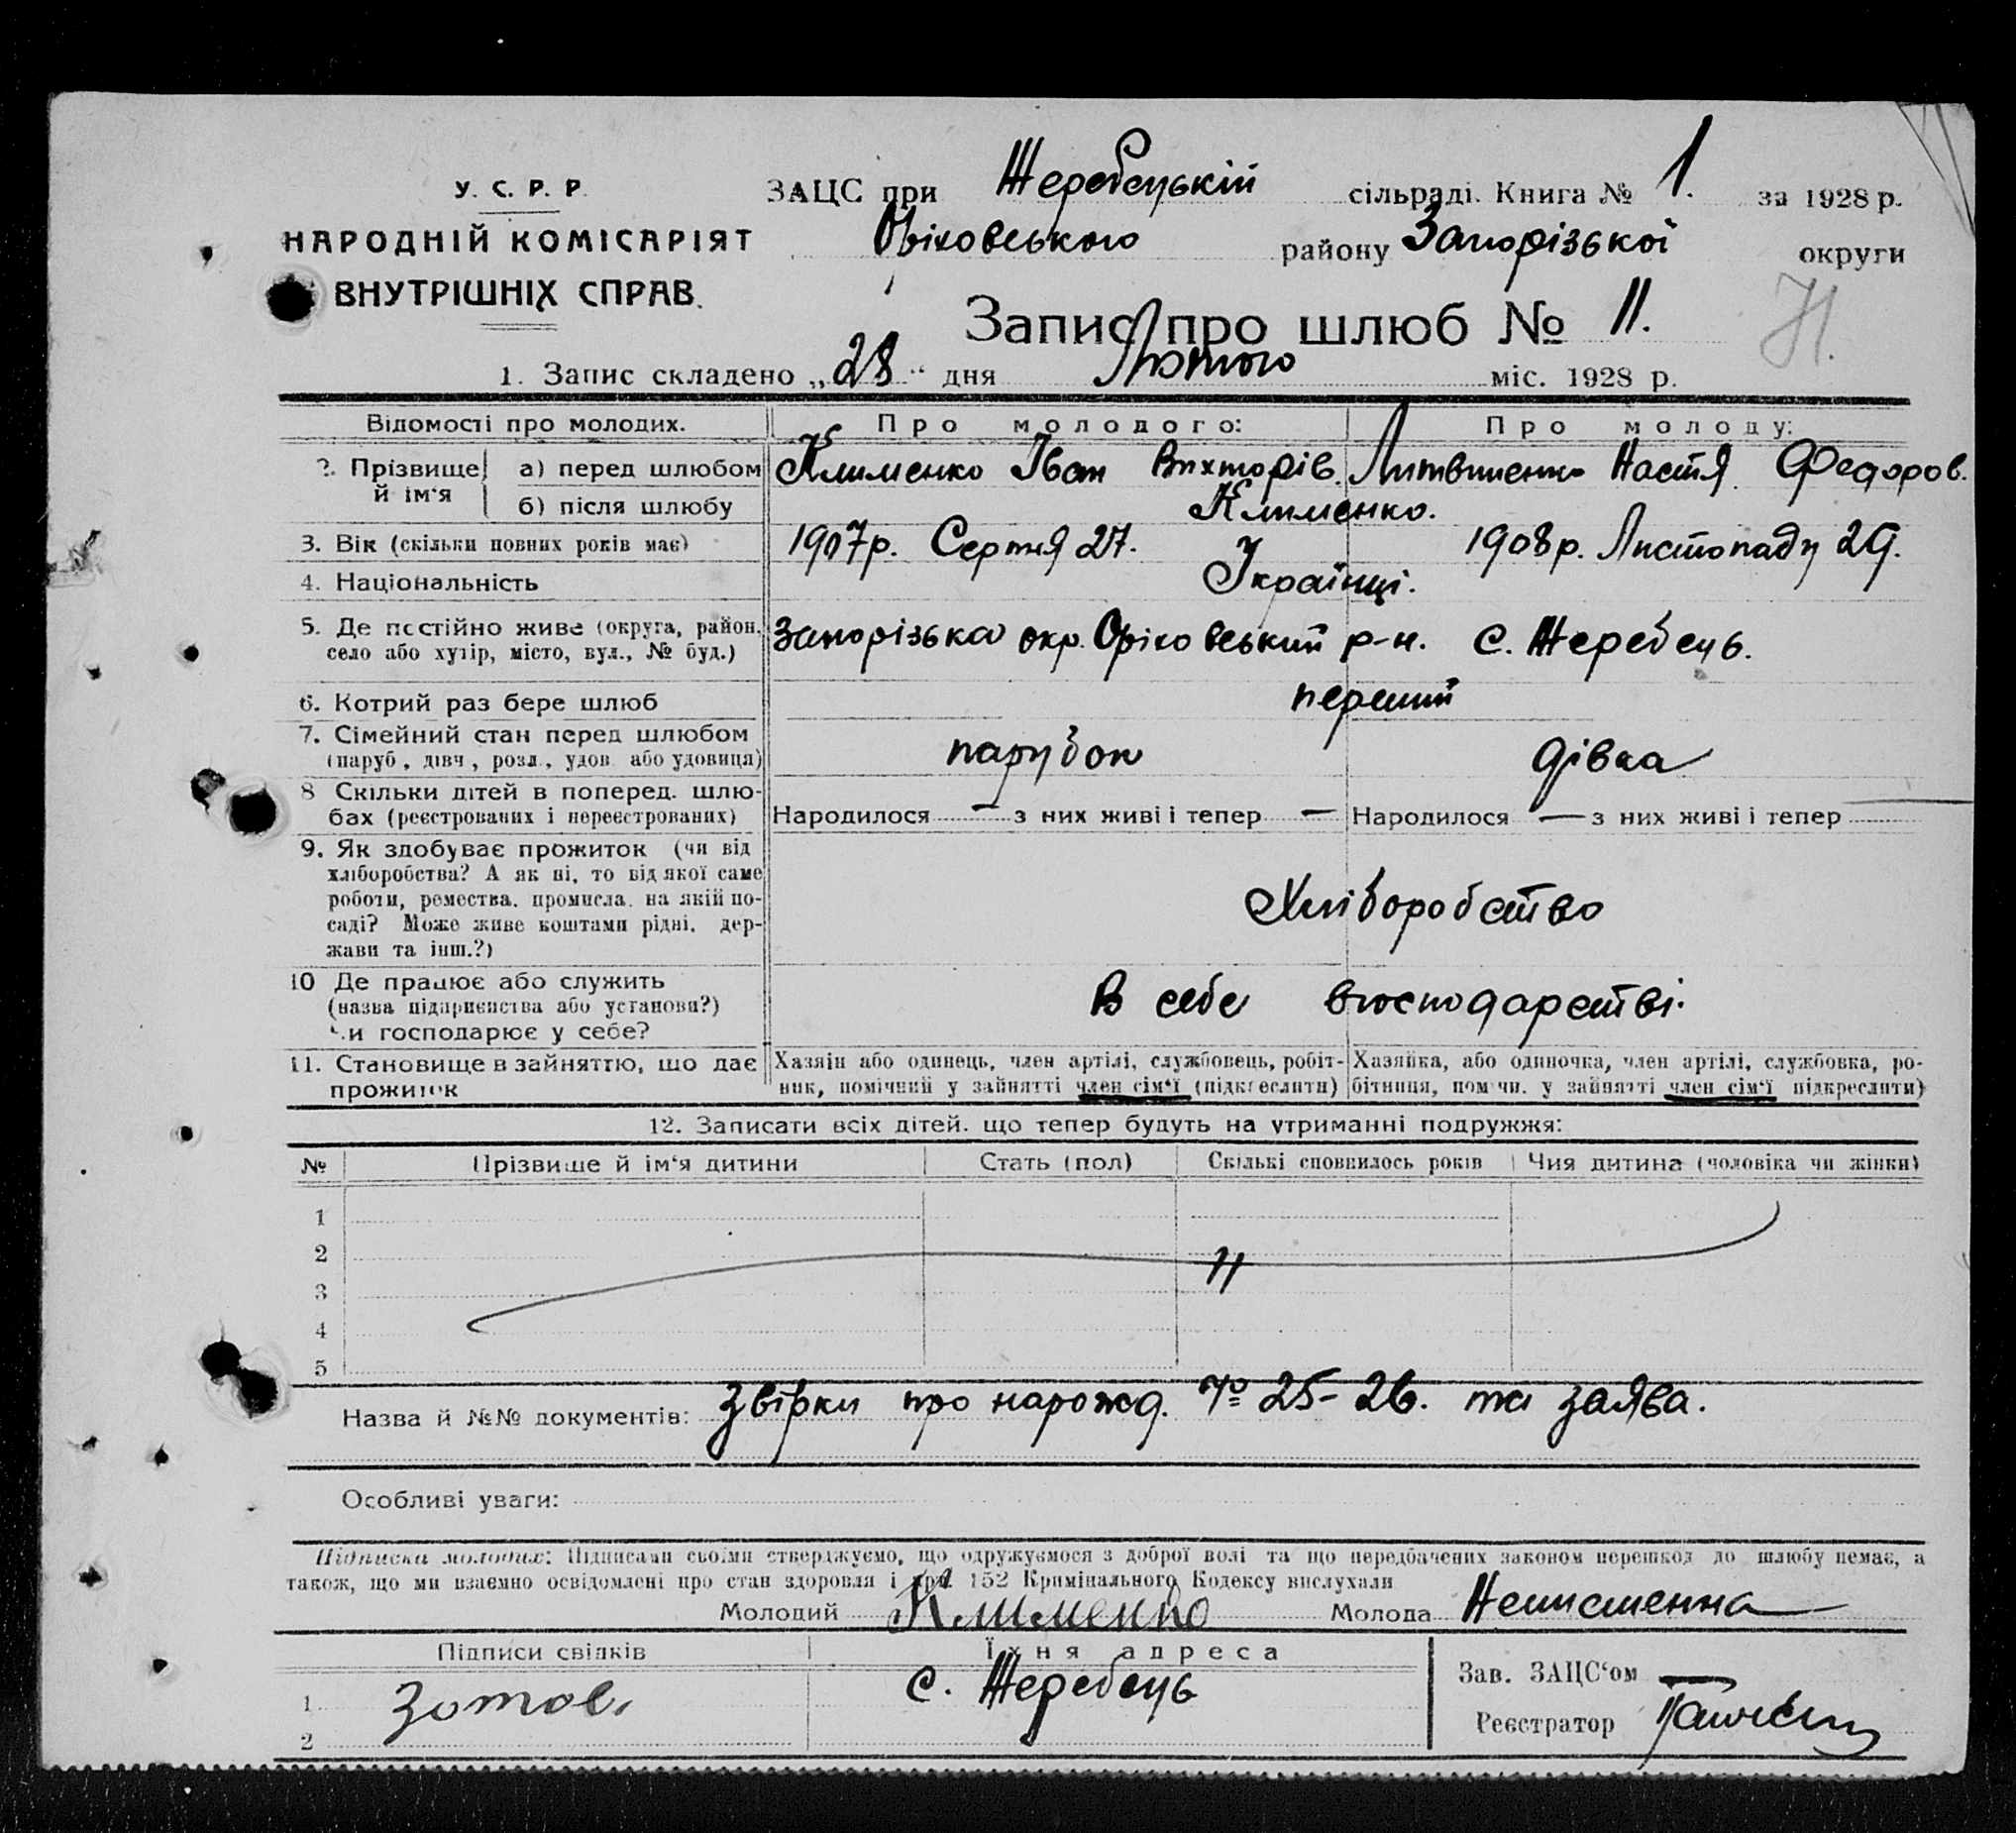 У. С. Р. Р.
НАРОДНІЙ КОМІСАРІЯТ
ВНУТРІШНІХ СПРАВ.
ЗАЦС при Жеребецькій сільраді. Книга № 1. за 1928 р.
Оріховського району Запорізької округи
Запис про шлюб № 11.
1. Запис складено „28“ дня Лютого міс. 1928 р.
Відомості про молодих. Про молодого: Про молоду:
2. Прізвище й ім‘я а) перед шлюбом Клименко Іван Вихторів. Литвиненко Настя Федоров.
б) після шлюбу Клименко.
3. Вік (скільки повних років має) 1907р. Серпня 27. 1908р. Листопаду 29.
4. Національність Українці.
5. Де постійно живе (округа, район, село або хутір, місто, вул., № буд.) Запорізька окр. Оріховський р-н. с. Жеребець.
6. Котрий раз бере шлюб перший
7. Сімейний стан перед шлюбом (паруб., дівч., розл., удов. або удовиця) парубок дівка
8 Скільки дітей в поперед. шлюбах (реєстрованих і нереєстрованих) Народилося — з них живі і тепер — Народилося — з них живі і тепер
9. Як здобуває прожиток (чи від
хліборобства? А як ні, то від якої саме
роботи, ремества, промисла, на якій по-
саді? Може живе коштами рідні, дер-
жави та інш.?)
Хліборобство
10 Де працює або служить
(назва підприємства або установи?)
Чи господарює у себе?
В себе вгосподарстві.
11. Становище в зайняттю, що дає прожиток
Хазяїн або одинець, член артілі, службовець, робіт-
ник, помічний у зайнятті член сім‘ї (підкреслити)
Хазяйка, або одиночка, член артілі, службовка, ро-
бітниця, помічн. у зайнятті член сім‘ї підкреслити)
12. Записати всіх дітей, що тепер будуть на утриманні подружжя:
№ Прізвище й ім‘я дитини Стать (пол) Скількі сповнилось років Чия дитина (чоловіка чи жінки)
1
2
3
4
5
Назва й №№ документів: Звірки про нарожд. № 25-26. та заява.
Особливі уваги:
Підписка молодих: Підписами своїми стверджуємо, що одружуємося з доброї волі та що передбачених законом перешкод до шлюбу немає, а
також, що ми взаємно освідомлені про стан здоровля і арт. 152 Кримінального Кодексу вислухали
Молодий Клименко Молода Неписменна
Підписи свідків Їхня адреса
1 Зотов с. Жеребець
2
Зав. ЗАЦС‘ом
Реєстратор